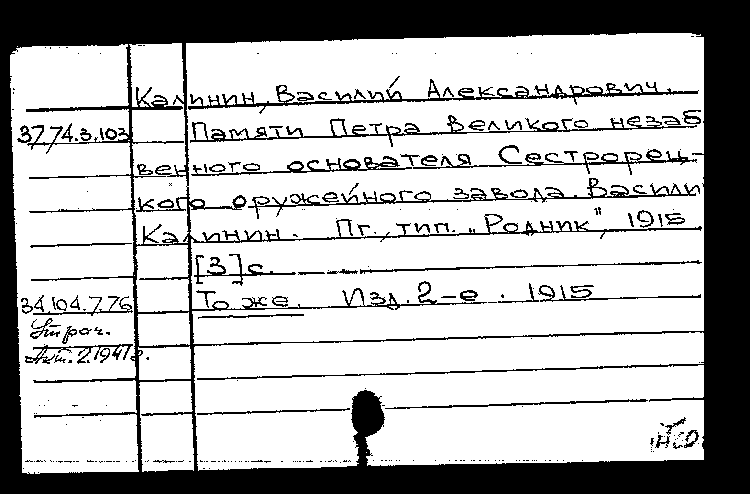 Калинин, Василий Александрович.
37.74.3.103 Памяти Петра Великого незаб
венного основателя Сестрорец-
кого оружейного завода. Васили
Калинин. Пг., тип. "Родник", 1915
[3]с.
34.104.7.76 То же. Изд. 2-е. 1915
Утрач.
Акт. 2.1941г.